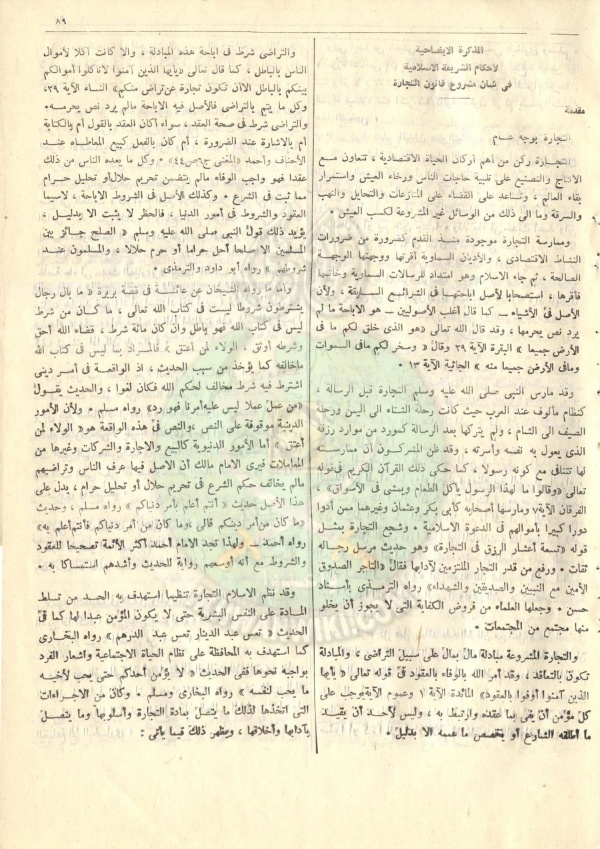 ٨٩
المذكرة الايضاحية
لأحكام الشريعة الاسلامية
فى شان مشروع قانون التجارة
مقدمة
التجارة بوجه عام
التجارة ركن من أهم أركان الحياة الاقتصادية ، تتعاون مع
الانتاج والتصنيع على تلبية حاجات الناس ورخاء العيش واستمرار
بقاء العالم ، وتساعد على القضاء على المنازعات والتحايل والنهب
والسرقة وما الى ذلك من الوسائل غير المشروعة لكسب العيش ٠
وممارسة التجارة موجودة منذ القدم كضرورة من ضرورات
النشاط الاقتصادى ، والأديان السماوية أقرتها ووجهتها الوجهة
الصالحة ، ثم جاء الاسلام وهو امتداد للرسالات السماوية وخاتمها
فأقرها ، استصحابا لأصل اباحتها فى الشرائع السابقة ، ولأن
الأصل فى الأشياء ــ كما قال أغلب الأصوليين ــ هو الاباحة ما لم
يرد نص يحرمها ، وقد قال الله تعالى «هو الذى خلق لكم ما فى
الأرض جميعا » البقرة الآية ٢٩ وقال « وسخر لكم مافى السموات
ومافى الأرض جميعا منه » الجاثية الآية ١٣ ٠
وقد مارس النبى صلى الله عليه وسلم التجارة قبل الرسالة ،
كنظام مألوف عند العرب حيث كانت رحلة الشتاء الى اليمن ورحلة
الصيف الى الشام ، ولم يتركها بعد الرسالة كمورد من موارد رزقه
الذى يعول به نفسه وأسرته ، وقد ظن المشركون أن ممارسته
لها تتنافى مع كونه رسولا ، كما حكى ذلك القرآن الكريم فى قوله
تعالى «وقالوا ما لهذا الرسول يأكل الطعام ويمشى فى الأسواق» ،
الفرقان الآية ٧ ومارسها أصحابه كأبى بكر وعثمان وغيرهما ممن أدوا
دورا كبيرا بأموالهم فى الدعوة الاسلامية ٠ وشجع التجارة بمثل
قوله «تسعة أعشار الرزق فى التجارة» وهو حديث مرسل رجاله
ثقات ٠ ورفع من قدر التجار الملتزمين لآدابها فقال «التاجر الصدوق
الأمين مع النبيين والصديقين والشهداء» رواه الترمذى بأسناد
حسن ٠ وجعلها العلماء من فروض الكفاية التى لا يجوز أن يخلو
منها مجتمع من المجتمعات ٠
والتجارة المشروعة مبادلة مال بمال على سبيل التراضى ، والمبادلة
تكون بالتعاقد ، وقد أمر الله بالوفاء بالعقود فى قوله تعالى « يأيها
الذين آمنوا أوفوا بالعقود» المائدة الآية ١ وعموم الآية يوجب على
كل مؤمن أن يفى بما عقده وارتبط به ، وليس لأحد أن يقيد
ما أطلقه الشارع أو يخصص ما عممه الا بدليل ٠
والتراضى شرط فى اباحة هذه المبادلة ، والا كانت أكلا لأموال
الناس بالباطل ، كما قال تعالى «يأيها الذين آمنوا لا تأكلوا أموالكم
بينكم بالباطل الا أن تكون تجارة عن تراض منكم» النساء الآية ٢٩،
وكل ما يتم بالتراضى فالأصل فيه الاباحة مالم يرد نص يحرمه ٠
والتراضى شرط فى صحة العقد ، سواء أكان العقد بالقول أم بالكتابة
أم بالاشارة عند الضرورة ، أم كان بالفعل كبيع المعاطاه عند
الأحناف وأحمد (المغنى ج٦ص٤٤» ٠ وكل ما يعده الناس من ذلك
عقدا فهو واجب الوفاء مالم يتضمن تحريم حلال أو تحليل حرام
مما ثبت فى الشرع ٠ وكذلك الأصل فى الشروط الاباحة ، لاسيما
العقود والشروط فى أمور الدنيا ، فالحظر لا يثبت الا بدليل ،
يؤيد ذلك قول النبى صلى الله عليه وسلم « الصلح جائز بين
المسلمين الا صلحا أحل حراما أو حرم حلالا ، والمسلمون عند
شروطهم » رواه أبو داود والترمذى ٠
وأما ما رواه الشيخان عن عائشة فى قصة بريرة « ما بال رجال
يشترطون شروطا ليست فى كتاب الله تعالى ، ما كان من شرط
ليس فى كتاب الله فهو باطل وان كان مائة شرط ، قضاء الله أحق
وشرطه أوثق ، الولاء لمن أعتق ٠» فالمراد بما ليس فى كتاب الله
ماخالفه كما يؤخذ من سبب الحديث ، اذ الواقعة فى أمر دينى
اشترط فيه شرط مخالف لحكم الله فكان لغوا ، والحديث يقول
«من عمل عملا ليس عليه أمرنا فهو رد» رواه مسلم ٠ ولأن الأمور
الدينية موقوفة على النص ، والنص فى هذه الواقعة هو«الولاء لمن
أعتق » أما الأمور الدنيوية كالبيع والاجارة والشركات وغيرها من
المعاملات فيرى الامام مالك أن الاصل فيها عرف الناس وتراضيهم
مالم يخالف حكم الشرع فى تحريم حلال أو تحليل حرام ، يدل على
هذا الأصل حديث « أنتم أعلم بأمر دنياكم » رواه مسلم ، وحديث
«ما كان من أمر دينكم فالى ،وما كان من أمر دنياكم فأنتم أعلم به»
رواه أحمد ــ ولهذا تجد الامام أحمد أكثر الأئمة تصحيحا للعقود
والشروط مع أنه أوسعهم رواية للحديث وأشدهم استمساكا به ٠
وقد نظم الاسلام التجارة تنظيما استهدف به الحد من تسلط
المادة على النفس البشرية حتى لا يكون المؤمن عبدا لها كما فى
الحديث « تعس عبد الدينار تعس عبد الدرهم » رواه البخارى
كما استهدف به المحافظة على نظام الحياة الاجتماعية واشعار الفرد
بواجبه نحوها ففى الحديث « لا يؤمن أحدكم حتى يحب لأخيه
ما يحب لنفسه » رواه البخارى ومسلم ٠ وكان من الاجراءات
التى اتخذها لذلك ما يتصل بمادة التجارة وأسلوبها وما يتصل
بآدابها وأخلاقها ، ويظهر ذلك فيما يأتى :